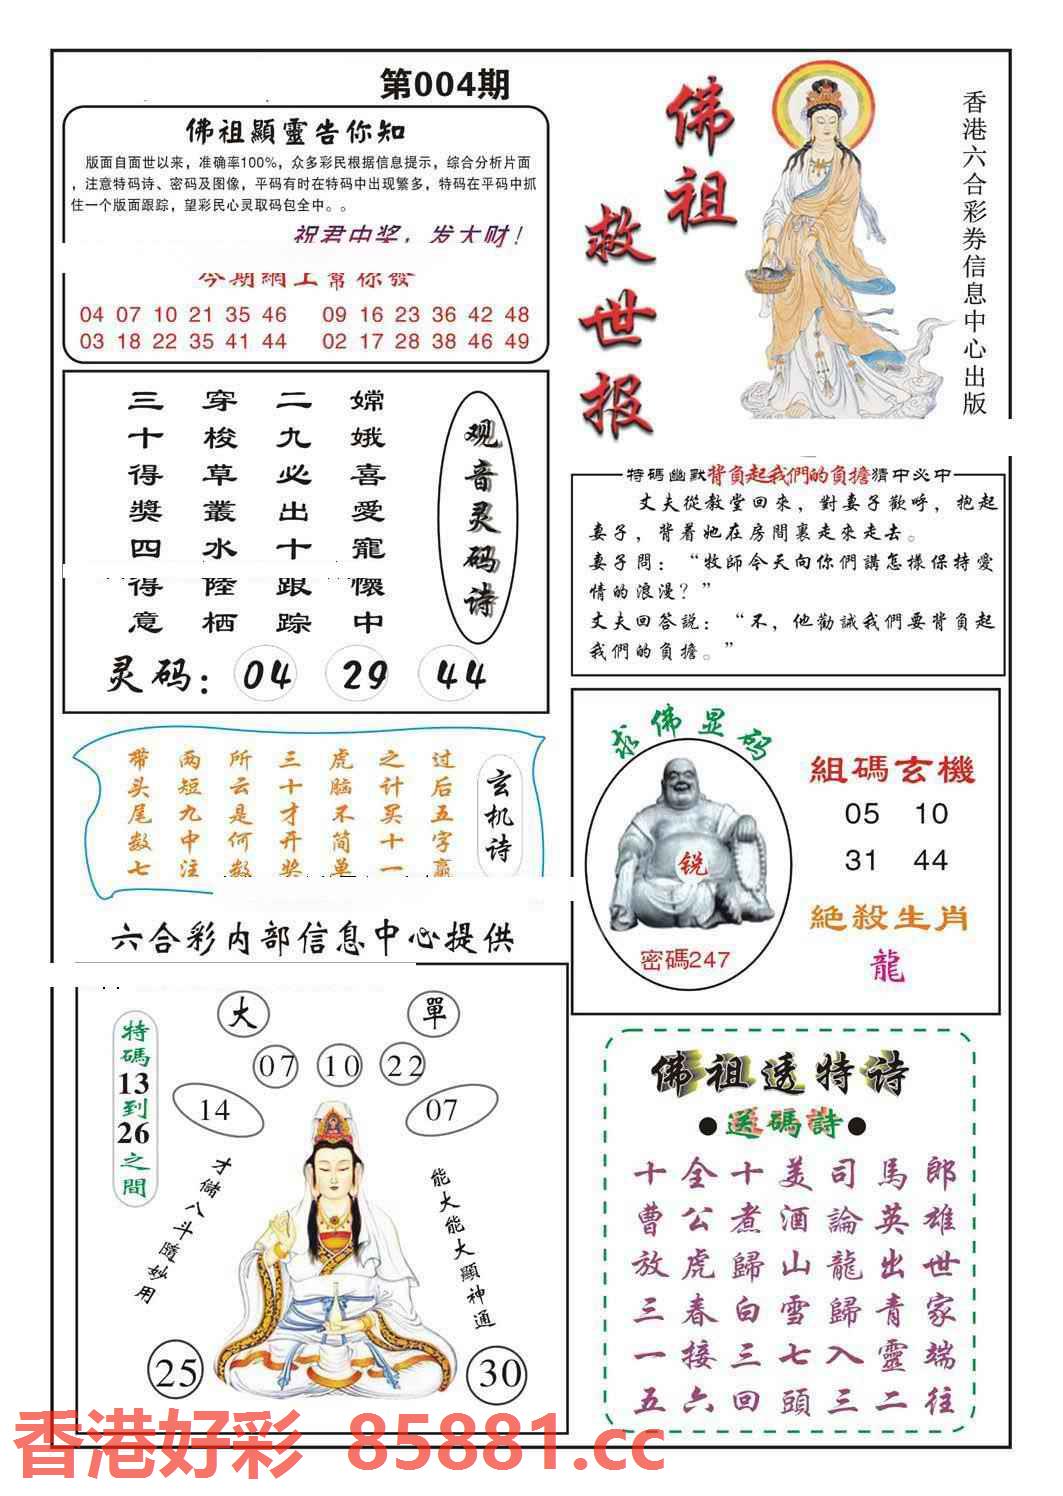 第004期
佛祖顯靈告你知
版面自面世以来，准确率100%，众多彩民根据信息提示，综合分析片面
，注意特码诗、密码及图像，平码有时在特码中出现繁多，特码在平码中抓
住一个版面跟踪，望彩民心灵取码包全中。。
祝君中奖，发大财！
今期網上幫你發
04 07 10 21 35 46 09 16 23 36 42 48
03 18 22 35 41 44 02 17 28 38 46 49
佛祖
救世报
香港六合彩券信息中心出版
观音灵码诗
嫦娥喜愛寵懷中
二九必出十跟踪
穿梭草叢水陸栖
三十得獎四得意
灵码：04 29 44
特碼幽默背負起我們的負擔猜中必中
丈夫從教堂回來，對妻子歡呼，抱起
妻子，背着她在房間裏走來走去。
妻子問：“牧師今天向你們講怎樣保持愛
情的浪漫？”
丈夫回答説：“不，他勸誡我們要背負起
我們的負擔。”
玄机诗
过后五字赢
之计买十一
虎脑不简单
三十才开奖
所云是何数
两短九中注
带头尾数七
求佛显码
锐
密碼247
組碼玄機
05 10
31 44
絕殺生肖
龍
六合彩内部信息中心提供
大 單
07 10 22
14 07
特碼13到26之間
才儲八斗隨妙用
能大能大顯神通
25 30
佛祖透特诗
●送碼詩●
郎雄世家端往
馬英出青靈二
司論龍歸入三
美酒山雪七頭
十煮歸白三回
全公虎春接六
十曹放三一五
香港好彩 85881.cc